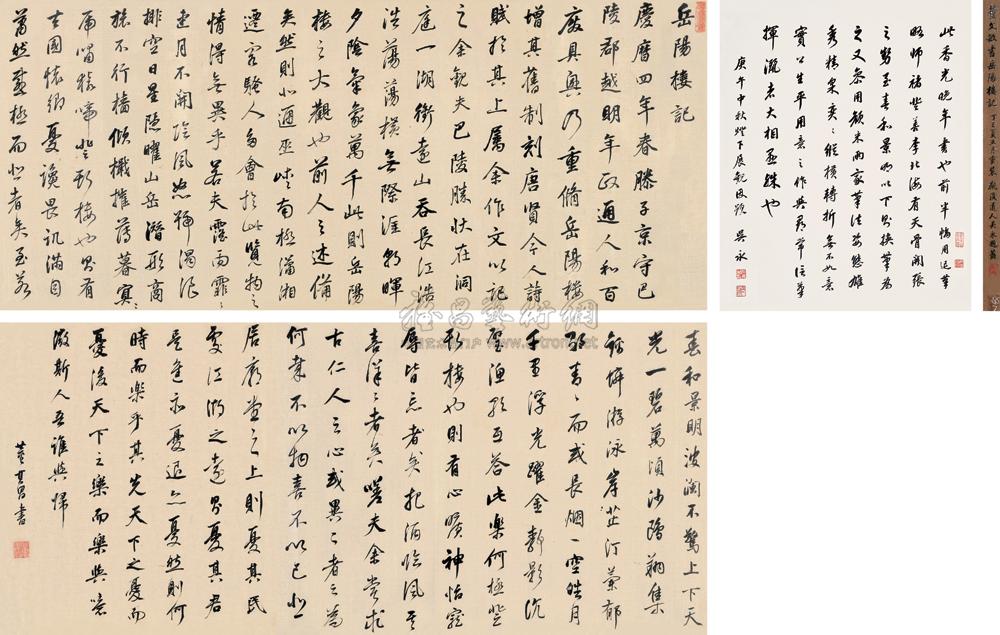 岳陽樓記
慶曆四年春滕子京守巴
陵郡越明年政通人和百
廢具興乃重脩岳陽樓
增其舊制刻唐賢今人詩
賦於其上屬余作文以記
之余觀夫巴陵勝狀在洞
庭一湖銜遠山吞長江浩
浩蕩蕩橫無際涯朝暉
夕陰氣象萬千此則岳陽
樓之大觀也前人之述備
矣然則北通巫峽南極瀟湘
遷客騷人多會於此覽物之
情得無異乎若夫霪雨霏〻
連月不開陰風怒號濁浪
排空日星隱曜山岳潛形商
旅不行檣傾檝摧薄暮冥〻
虎嘯猿啼登斯樓也則有
去國懷鄉憂讒畏譏滿目
蕭然感極而悲者矣至若
春和景明波瀾不驚上下天
光一碧萬頃沙鷗翔集
錦鱗游泳岸芷汀蘭郁
郁青〻而或長烟一空皓月
千里浮光躍金靜影沉
璧漁歌互答此樂何極登
斯樓也則有心曠神怡寵
辱皆忘者矣把酒臨風其
喜洋〻者矣嗟夫余嘗求
古仁人之心或異二者之為
何事不以物喜不以己悲
居廟堂之上則憂其民
處江湖之遠則憂其君
是進亦憂退亦憂然則何
時而樂乎其先天下之憂而
憂後天下之樂而樂與噫
微斯人吾誰與歸
董其昌書
此香光晚年書也前半幅用運筆
略師褚登善李北海有天骨開張
之勢至春和景明以下則換筆為
之又參用顏米兩家筆法姿態雄
秀精采奕〻縱橫轉折無不如意
實公生平用意之作與尋常信筆
揮灑者大相逕殊也
庚午中秋燈下展觀因題 吳永
董文敏書岳陽樓記